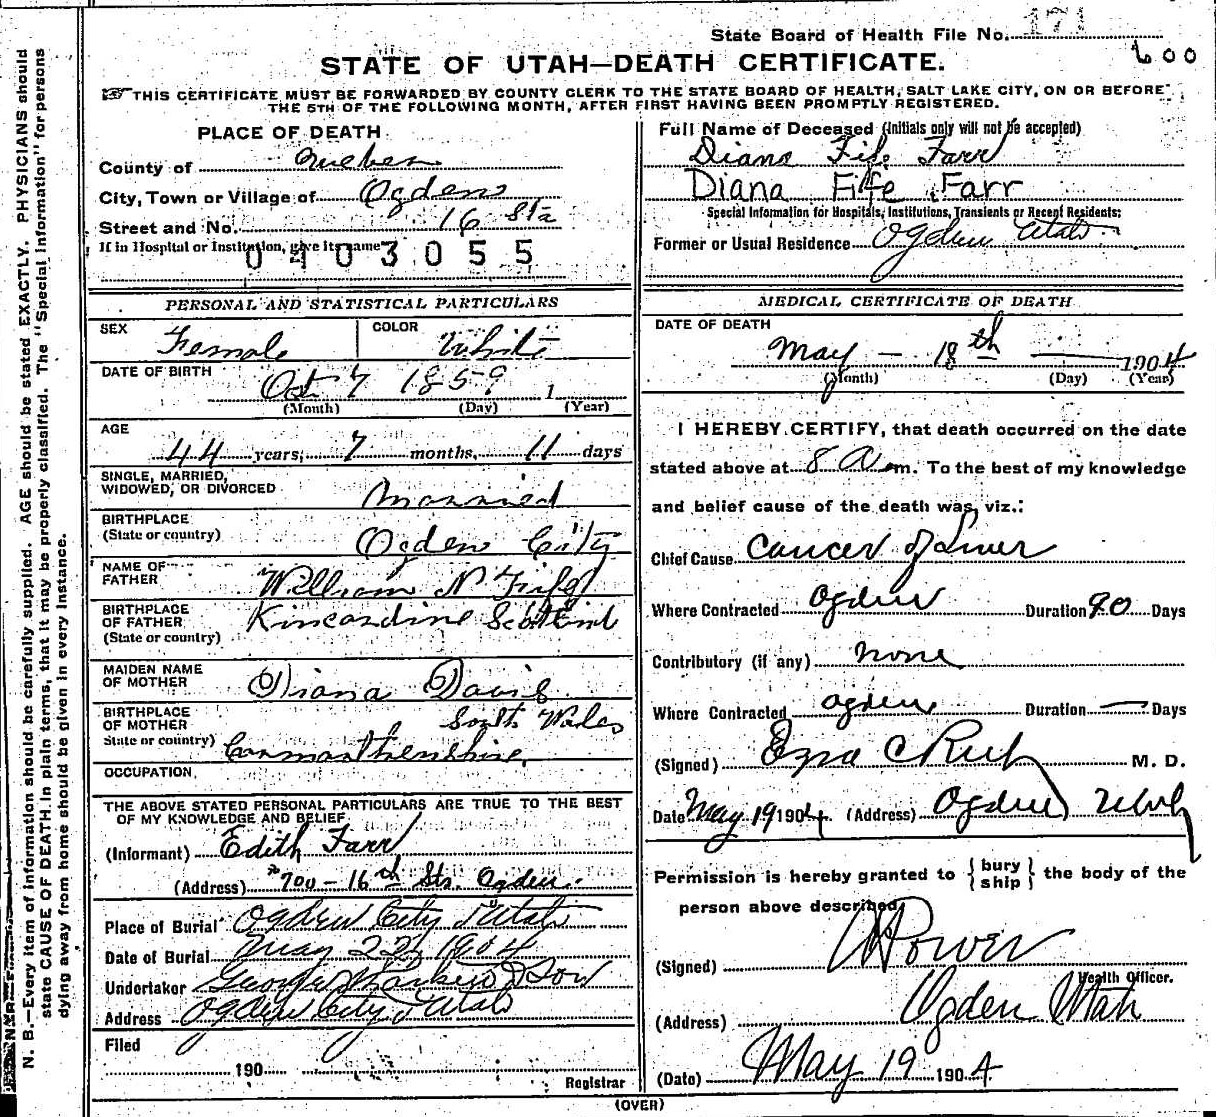 State Board of Health File No. 171
600
STATE OF UTAH—DEATH CERTIFICATE.
THIS CERTIFICATE MUST BE FORWARDED BY COUNTY CLERK TO THE STATE BOARD OF HEALTH, SALT LAKE CITY, ON OR BEFORE
THE 5TH OF THE FOLLOWING MONTH, AFTER FIRST HAVING BEEN PROMPTLY REGISTERED.
N. B.—Every item of information should be carefully supplied. AGE should be stated EXACTLY. PHYSICIANS should
state CAUSE OF DEATH in plain terms, that it may be properly classified. The "Special Information" for persons
dying away from home should be given in every instance.
PLACE OF DEATH
County of
City, Town or Village of Ogden
Street and No. 16 Sts
If in Hospital or Institution, give its name
0403055
PERSONAL AND STATISTICAL PARTICULARS
SEX Female COLOR White
DATE OF BIRTH Oct 7 1859 1
(Month) (Day) (Year)
AGE
44 years, 7 months, 11 days
SINGLE, MARRIED,
WIDOWED, OR DIVORCED Married
BIRTHPLACE
(State or country) Ogden City
NAME OF
FATHER William N Fife
BIRTHPLACE
OF FATHER Kincardine Scotland
(State or country)
MAIDEN NAME
OF MOTHER Diana Davis
BIRTHPLACE
OF MOTHER South Wales
State or country) Carmarthenshire
OCCUPATION
THE ABOVE STATED PERSONAL PARTICULARS ARE TRUE TO THE BEST
OF MY KNOWLEDGE AND BELIEF
(Informant) Edith Farr
(Address) 700 - 16th Sts. Ogden.
Place of Burial Ogden City Utah
Date of Burial May 22 1904
Undertaker George Larkin & Son
Address Ogden City Utah
Filed
190
Registrar
Full Name of Deceased (initials only will not be accepted)
Diana Fife Farr
Diana Fife Farr
Special Information for Hospitals, Institutions, Transients or Recent Residents:
Former or Usual Residence Ogden Utah
MEDICAL CERTIFICATE OF DEATH
DATE OF DEATH
May - 18th 1904
(Month) (Day) (Year)
I HEREBY CERTIFY, that death occurred on the date
stated above at 8 A m. To the best of my knowledge
and belief cause of the death was, viz.:
Chief Cause Cancer of Liver
Where Contracted Ogden Duration 90 Days
Contributory (if any) none
Where Contracted Ogden Duration — Days
(Signed) Ezra C Rich M. D.
Date May 19 1904. (Address) Ogden Utah
Permission is hereby granted to { bury
ship } the body of the
person above described
(Signed) Power
Health Officer.
(Address) Ogden Utah
(Date) May 19 1904.
(OVER)